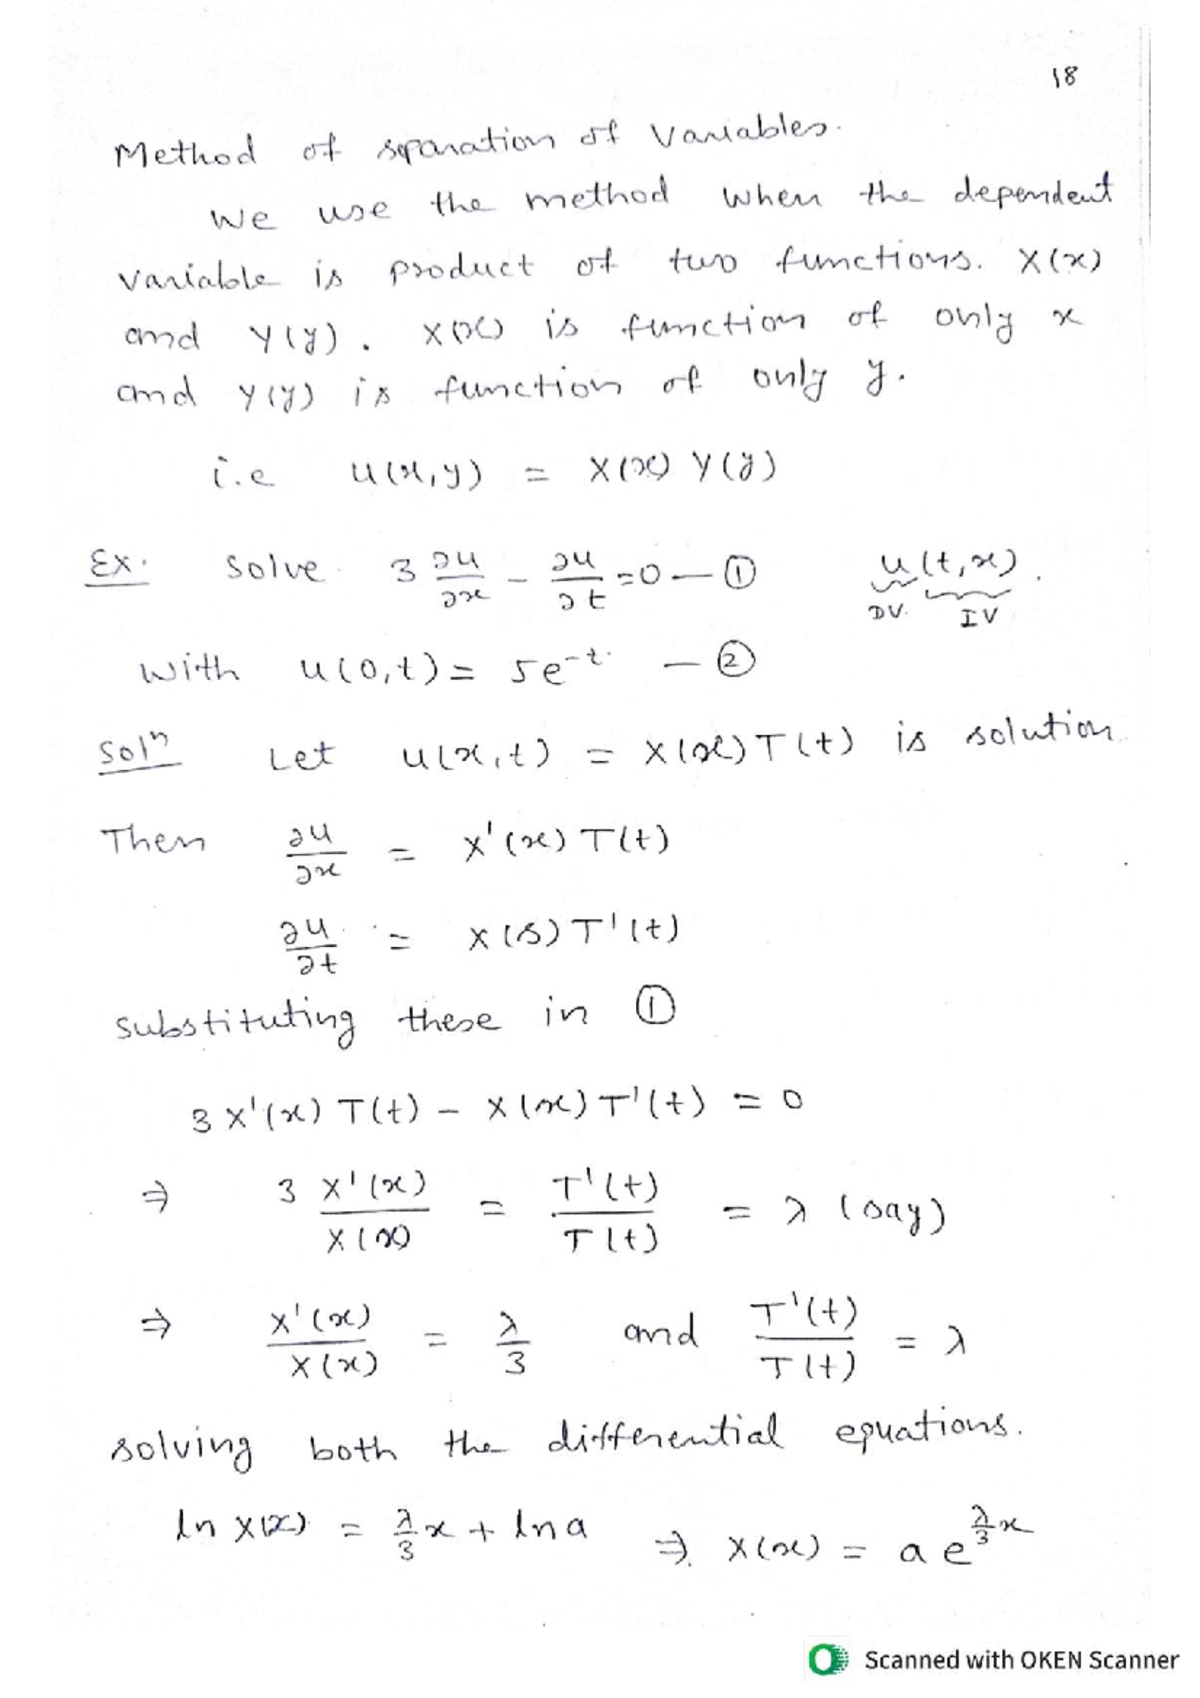 18
Method of separation of Variables.
We use the method when the dependent
variable is product of two functions. X(x)
and Y(y). X(x) is function of only x
and Y(y) is function of only y.
i.e u(x,y) = X(x) Y(y)
Ex. Solve 3 ∂u/∂x - ∂u/∂t = 0 — ① u(t,x).
DV. IV
With u(0,t) = 5e^-t. — ②
Solⁿ Let u(x,t) = X(x)T(t) is solution.
Then ∂u/∂x = X'(x) T(t)
∂u/∂t = X(s) T'(t)
substituting these in ①
3 X'(x) T(t) - X(x) T'(t) = 0
⇒ 3 X'(x)/X(x) = T'(t)/T(t) = λ (say)
⇒ X'(x)/X(x) = λ/3 and T'(t)/T(t) = λ
solving both the differential equations.
ln X(x) = λ/3 x + ln a ⇒ X(x) = a e^(λ/3 x)
Scanned with OKEN Scanner